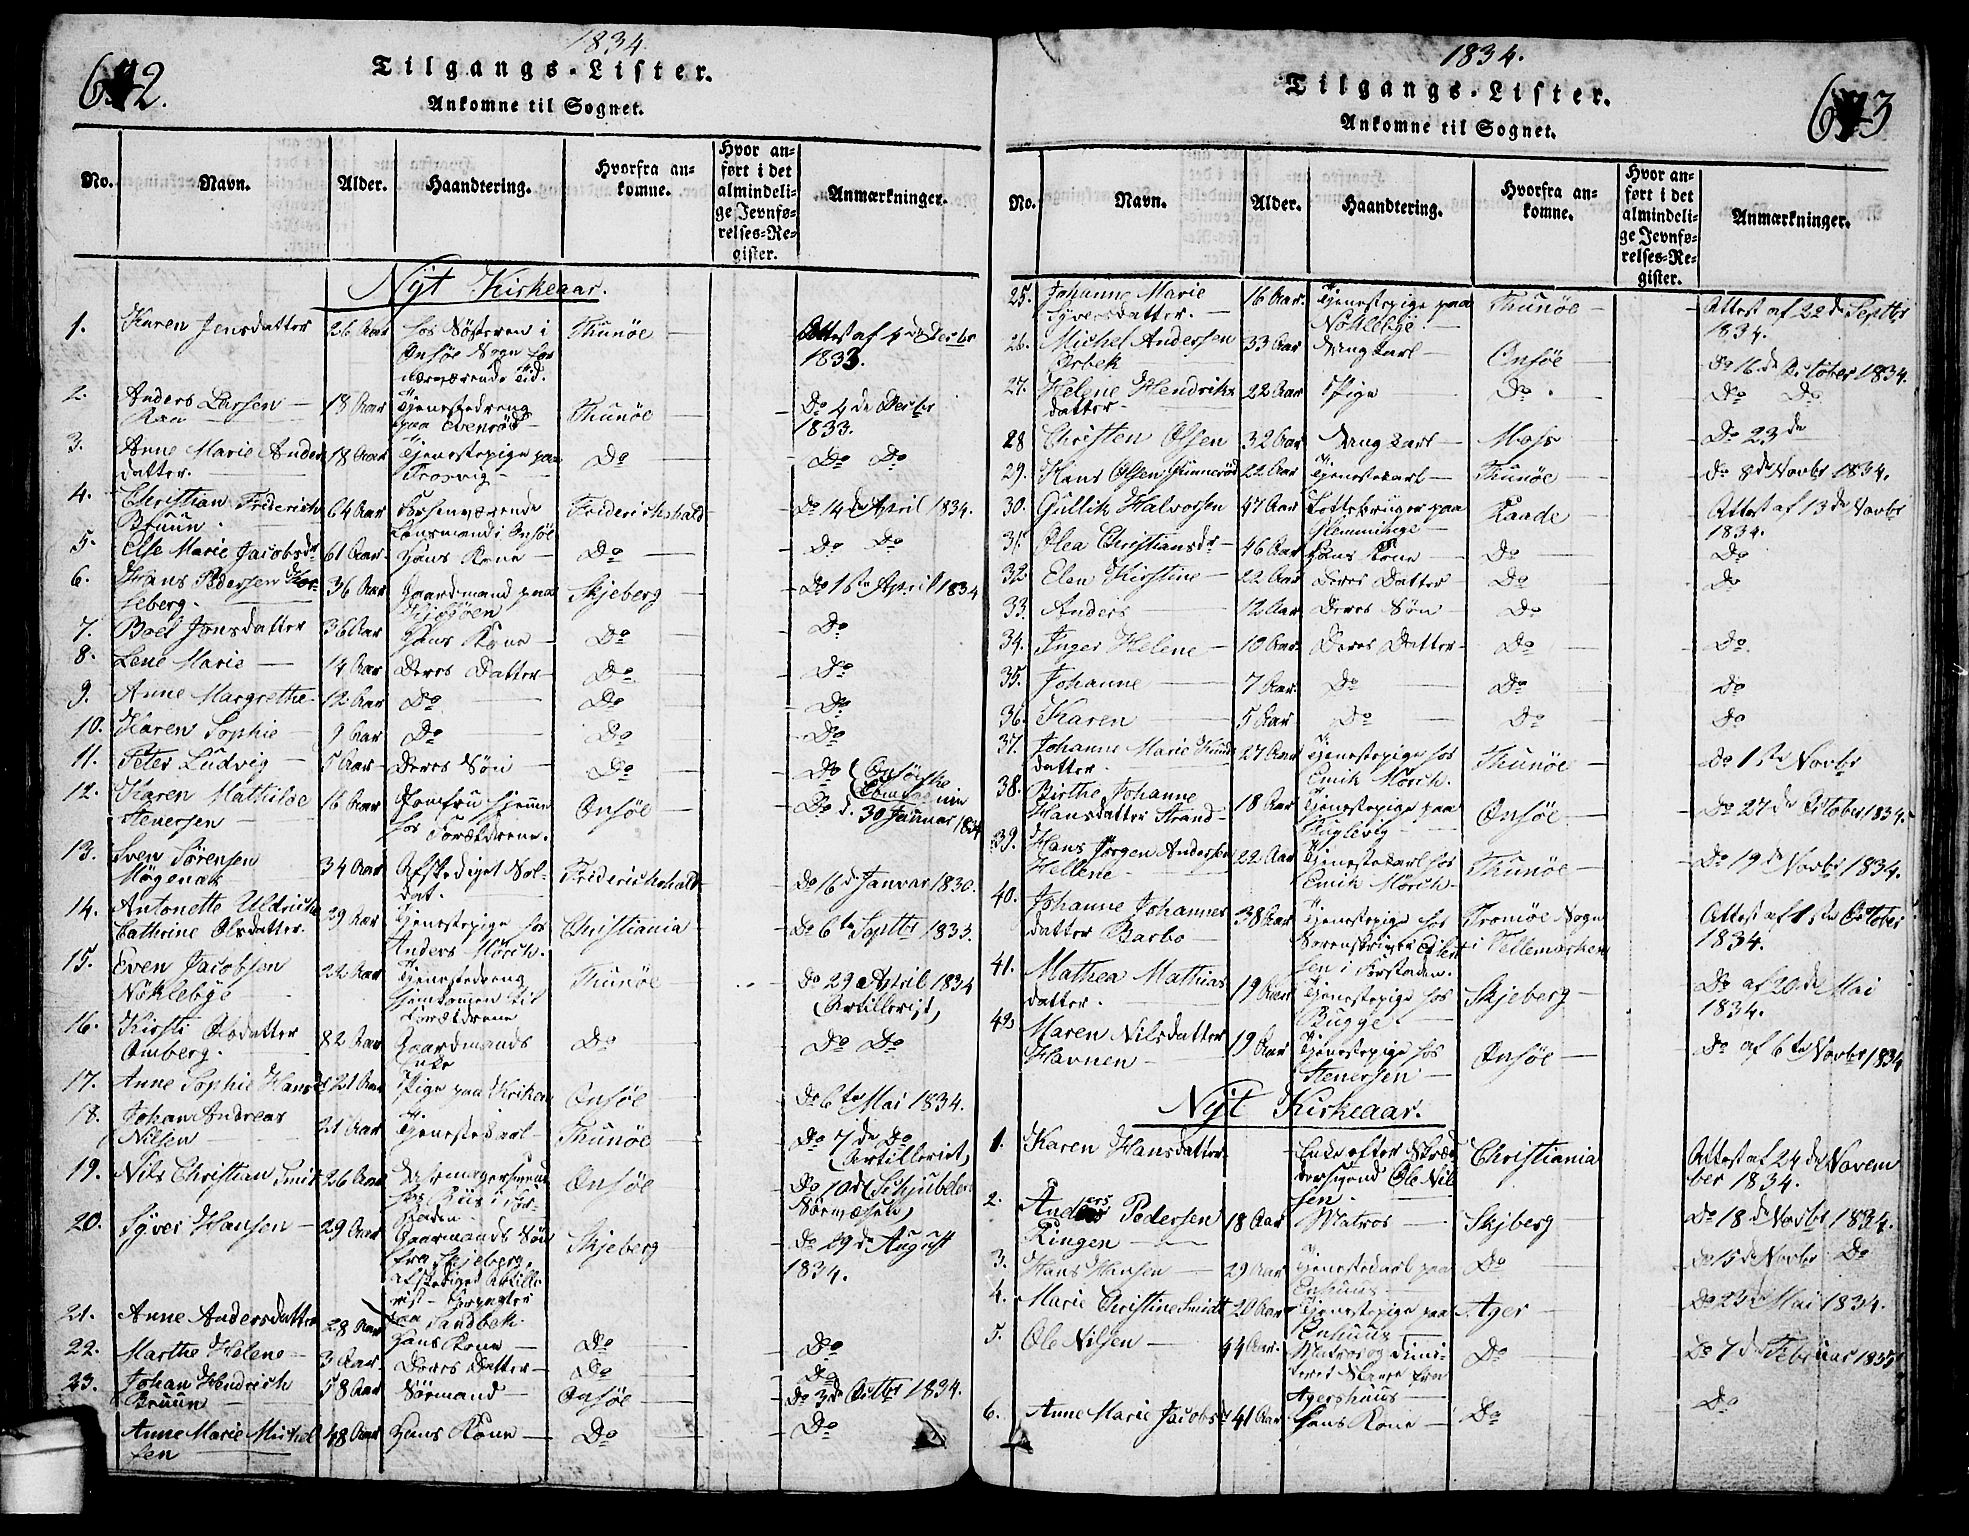 642.
1834.
Tilgangs-Lister.
Ankomne til Sognet.
No.
Navn.
Alder.
Haandtering.
Hvorfra an-
komne.
Hvor an-
ført i det
almindeli-
ge Jevnfø-
relses-Re-
gister.
Anmærkninger.
Nyt Kirkeaar.
1. Karen Jensdatter 26 Aar hos Søsteren i Thunöe — Attest af 4de Decbr
Onsöe Sogn for 1833.
nærværende Tid.
2. Anders Larsen — 18 Aar Tjenestedreng Thunöe — Do 4de Decbr
paa Evenröd — 1833.
3. Anne Marie Anders 18 Aar Tjenestepige paa Do — Do Do
datter. Trosvig —
4. Christian Friderich 64 Aar Forhenværende Friderichshald — Do 14de April 1834.
Bruun. Lensmand i Onsöe
5. Else Marie Jacobsdr 61 Aar Hans Kone — Do — Do Do
6. Hans Pedersen 36 Aar Gaardmand paa Skjeberg — Do 1ste April 1834
seberg. Kjölöen
7. Boel Jonsdatter 36 Aar Hans Kone — Do — Do
8. Lene Marie — 14 Aar Deres Datter — Do — Do
9. Anne Margrethe 12 Aar Do — Do — Do
10. Karen Sophie — 9 Aar Do — Do — Do
11. Peter Ludvig — 5 Aar Deres Søn — Do — Do
12. Karen Mathilde 16 Aar Jomfru hjemme Onsöe — Do d. 30 Januar 1834
Stenersen — hos Forældrene.
13. Sven Sörensen 34 Aar Afskediget Sol- Friderichshald — Do 16de Januar 1830.
dat.
14. Antonette Uldricke 29 Aar Tjenestepige hos Christiania — Do 6te Septbr 1833.
Cathrine Olsdatter. Anders Mörch.
15. Even Jacobsen 22 Aar Tjenestedreng Thunöe — Do 29 April 1834
Nöklebye hjemkommen til (Artillerist)
Forældrene
16. Kirsti Olsdatter 82 Aar Gaardmands Do — Do Do
Omberg. Enke
17. Anne Sophie Hansdr 21 Aar Pige paa Kirken Onsöe — Do 6te Mai 1834.
18. Johan Andreas 21 Aar Tjenestekarl — Thunöe — Do 7de Do
Nilsen — (Artilleriet)
19. Nils Christian Smit 26 Aar Onsöe — Do 10de (Schjubeler
hos Riis i For- Sörvæsenet)
staden —
20. Syver Hansen — 29 Aar Gaarmands Søn Skjeberg — Do 29de August
fra Skjeberg, 1834.
afskediget Artille-
rist — Forpagter
21. Anne Andersdatter 28 Aar paa Sandbek.
Hans Kone — Do — Do
22. Marthe Helene — 3 Aar Deres Datter — Do — Do
23. Johan Hendrich 58 Aar Sörmand — Onsöe — Do 3de Octbr 1834.
Bruun —
Anne Marie Michel 48 Aar Hans Kone — Do — Do
sen —
1834.
Tilgangs-Lister.
Ankomne til Sognet.
643
No.
Navn.
Alder.
Haandtering.
Hvorfra an-
komne.
Hvor an-
ført i det
almindeli-
ge Jevnfø-
relses-Re-
gister.
Anmærkninger.
25. Johanne Marie 16 Aar Tjenestepige paa Thunöe — Attest af 22de Septbr
Syversdatter. — Nöklebye. 1834.
26. Michel Andersen 33 Aar Ungkarl — Onsöe — Do 16de October 1834.
Orbek
27. Helene Hendriks 22 Aar Pige Do. — Do Do
datter —
28 Christen Olsen 32 Aar Ungkarl — Moss — Do 23de
29. Hans Olsen 22 Aar Tjenestekarl — Thunöe — Do 8de Novbr 1834.
30. Gullik Halvorsen 47 Aar Lottebruger paa Raade — Attest af 13de Novbr
31. Olea Christiansdr — 46 Aar Glemminge 1834.
Hans Kone — Do — Do
32 Elen Kirstine — 22 Aar Deres Datter — Do — Do
33. Anders — 12 Aar Deres Søn — Do
34. Inger Helene — 10 Aar Deres Datter — Do — Do
35. Johanne — 7 Aar Do — Do — Do
36. Karen — 5 Aar Do — Do — Do
37. Johanne Marie Knuds 27 Aar Tjenestepige hos Thunöe — Do 1ste Novbr
datter. Emih Mörch.
38. Birthe Johanne 18 Aar Tjenestepige paa Onsöe — Do 27de October 1834.
Hansdatter Strand — Kuglevig —
39. Hans Jörgen Andersen 22 Aar Tjenestekarl hos Thunöe — Do 19de Novbr 1834.
Hellene — Emih Mörch —
40. Johanne Johannes 38 Aar Tjenestepige hos Tromöe Sogn Attest af 1ste October
datter Barbo — Sorenskriver Eilert- i Tellemarken 1834.
sen i Forstaden.
41. Mathea Mathias 19 Aar Tjenestepige hos Skjeberg — Do af 20de Mai
datter. Bugge — 1834.
42 Maren Nilsdatter 19 Aar Tjenestepige hos Onsöe — Do af 6te Novbr 1834
Havnen — Stenersen —
Nyt Kirkeaar.
1. Karen Hansdatter Enke efter Skræd- Christiania Attest af 24de Novem
dersvend Ole Nil ber 1834.
sen —
2. Anders Pedersen 18 Aar Matros — Skjberg — Do 18de Novbr 1834.
Ringen —
3. Hans Hansen — 29 Aar Tjenestekarl paa Do — Do 15de Novbr Do
Enhuus —
4. Marie Christine Smidt 20 Aar Tjenestepige paa Ager — Do 23de Mai 1834.
Enhuus —
5. Ole Nilsen — 44 Aar. Matros og Dimi- Do — Do 7de Februar 1835
teret Slave fra
Agershuus —
6. Anne Marie Jacobsd 41 Aar Hans Kone — Do — Do